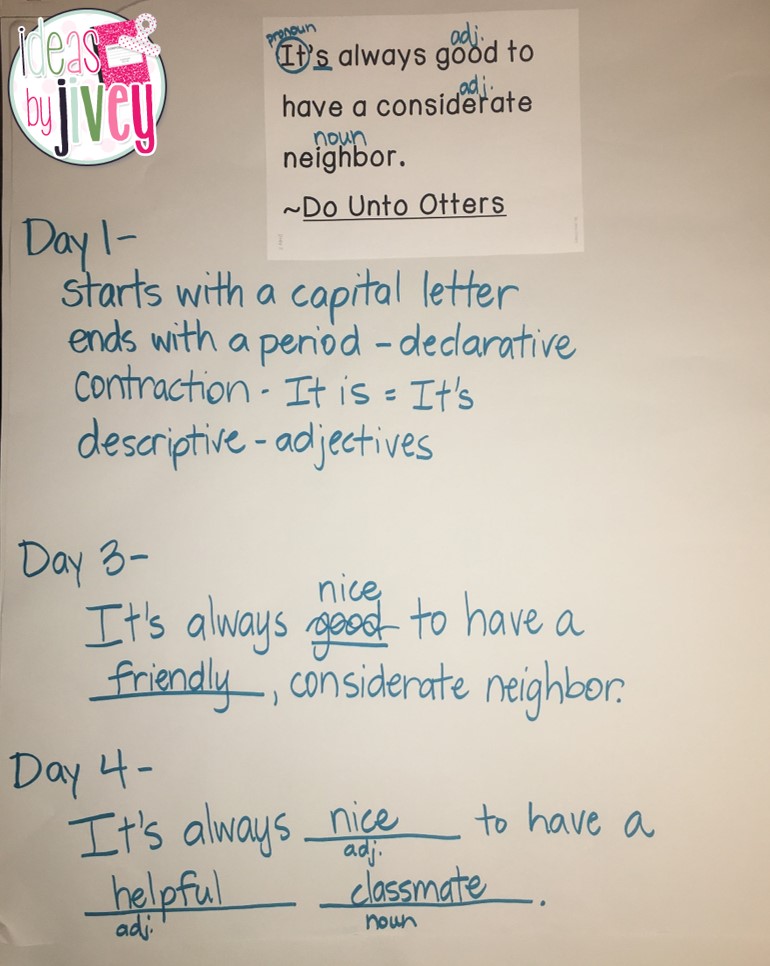 ideas
by jivey
pronoun adj.
It's always good to
adj.
have a considerate
noun
neighbor.
~Do Unto Otters
Day 1-
starts with a capital letter
ends with a period - declarative
contraction - It is = It's
descriptive - adjectives
Day 3-
nice
It's always good to have a
friendly, considerate neighbor.
Day 4-
It's always nice to have a
adj.
helpful classmate.
adj. noun